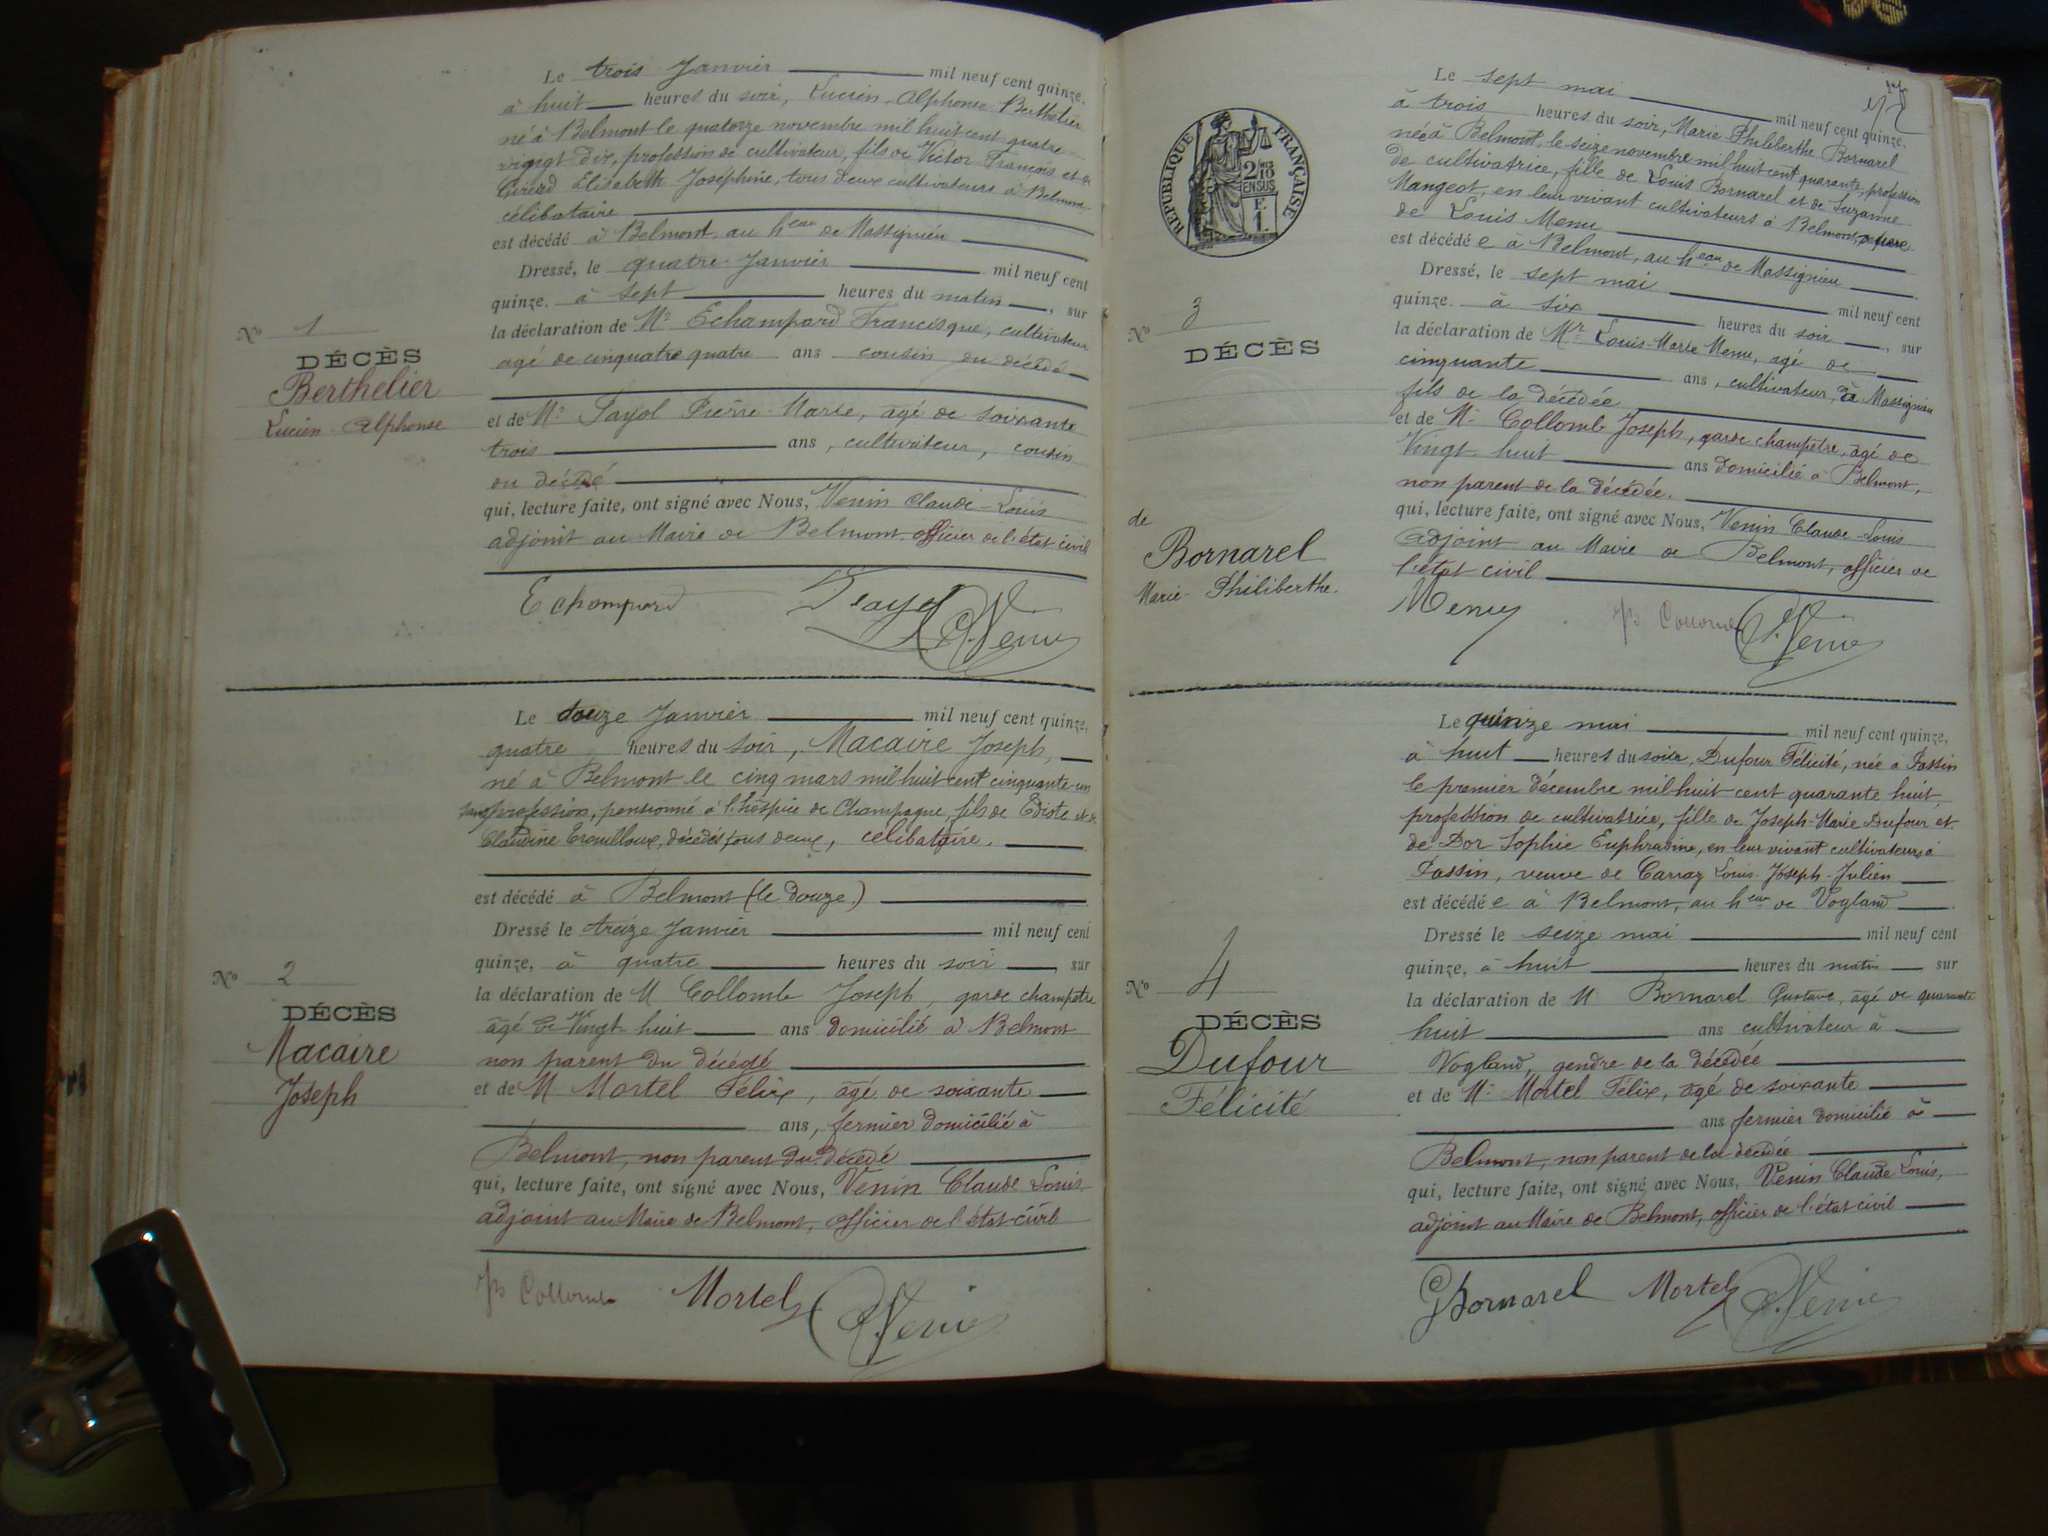 Le trois Janvier mil neuf cent quinze,
à huit heures du soir, Lucien Alphonse Berthelier
né à Belmont le quatorze novembre mil huit cent quatre
vingt dix, profession de cultivateur, fils de Victor François et de
Girerd Elisabeth Joséphine, tous deux cultivateurs à Belmont
célibataire
est décédé à Belmont, au heau de Massignieu
Dressé, le quatre Janvier mil neuf cent
quinze. à sept heures du matin, sur
la déclaration de Mr Echampard Francisque, cultivateur
agé de cinquatre quatre ans cousin du décédé
et de Mr Payol Pierre-Marie, agé de soixante
trois ans, cultivateur, cousin
du décédé
qui, lecture faite, ont signé avec Nous, Venin Claude-Louis
adjoint au Maire de Belmont officier de l'état civil
No 1
DÉCÈS
Berthelier
Lucien Alphonse
Echampard
Venin
Le douze Janvier mil neuf cent quinze,
quatre heures du soir, Macaire Joseph,
né à Belmont le cinq mars mil huit cent cinquante un
sans profession, pensionné à l'hospice de Champagne, fils de
Claudine décédés tous deux, célibataire.
est décédé à Belmont (le douze)
Dressé le treize Janvier mil neuf cent
quinze, à quatre heures du soir, sur
la déclaration de M Collomb Joseph, garde champêtre
âgé de Vingt huit ans domicilié à Belmont
non parent du décédé
et de M Mortel Félix, agé de soixante
ans, fermier domicilié à
Belmont, non parent du décédé
qui, lecture faite, ont signé avec Nous, Venin Claude Louis
adjoint au Maire de Belmont, officier de l'état civil
No 2
DÉCÈS
Macaire
Joseph
Collomb Mortel Venin
RÉPUBLIQUE FRANÇAISE
Le sept mai mil neuf cent quinze,
à trois heures du soir, Marie Philiberthe Bornarel
née à Belmont, le seize novembre mil huit cent quarante, profession
de cultivatrice, fille de Louis Bornarel et de Suzanne
Mangeot, en leur vivant cultivateurs à Belmont,
de Louis Menu
est décédée à Belmont, au heau de Massignieu
Dressé, le sept mai mil neuf cent
quinze. à six heures du soir, sur
la déclaration de Mr Louis-Marie Menu, agé de
cinquante ans, cultivateur, à Massignieu
fils de la décédée
et de Mr Collomb Joseph, garde champêtre, agé de
Vingt huit ans domicilié à Belmont,
non parent de la décédée.
qui, lecture faite, ont signé avec Nous, Venin Claude-Louis
adjoint au Maire de Belmont, officier de
l'état civil
No 3
DÉCÈS
de
Bornarel
Marie-Philiberthe.
Menu Collomb Venin
Le quinze mai mil neuf cent quinze,
à huit heures du soir, Dufour Félicité, née à Passin
le premier décembre mil huit cent quarante huit,
profession de cultivatrice, fille de Joseph-Marie Dufour et
de Dor Sophie Euphrasine, en leur vivant cultivateurs à
Passin, veuve de Carraz Louis-Joseph-Julien
est décédée à Belmont, au heau de Vogland
Dressé le seize mai mil neuf cent
quinze, à huit heures du matin sur
la déclaration de M Bornarel Gustave, agé de quarante
huit ans cultivateur à
Vogland, gendre de la décédée
et de Mr Mortel Félix, agé de soixante
ans fermier domicilié à
Belmont, non parent de la décédée
qui, lecture faite, ont signé avec Nous, Venin Claude Louis,
adjoint au Maire de Belmont, officier de l'état civil
No 4
DÉCÈS
Dufour
Félicité
GBornarel Mortel Venin